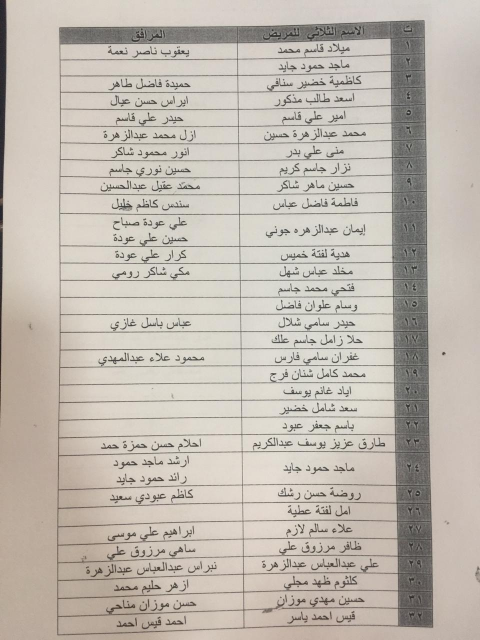 ت الاسم الثلاثي للمريض المرافق
١ ميلاد قاسم محمد يعقوب ناصر نعمة
٢ ماجد حمود جايد
٣ كاظمية خضير سنافي حميدة فاضل طاهر
٤ اسعد طالب مذكور ايراس حسن عيال
٥ امير علي قاسم حيدر علي قاسم
٦ محمد عبدالزهرة حسين ازل محمد عبدالزهرة
٧ منى علي بدر انور محمود شاكر
٨ نزار جاسم كريم حسين نوري جاسم
٩ حسين ماهر شاكر محمد عقيل عبدالحسين
١٠ فاطمة فاضل عباس سندس كاظم خليل
١١ إيمان عبدالزهره جوني علي عودة صباح
حسين علي عودة
١٢ هدية لفتة خميس كرار علي عودة
١٣ مخلد عباس شهل مكي شاكر رومي
١٤ فتحي محمد جاسم
١٥ وسام علوان فاضل
١٦ حيدر سامي شلال عباس باسل غازي
١٧ حلا زامل جاسم علك
١٨ غفران سامي فارس محمود علاء عبدالمهدي
١٩ محمد كامل شنان فرج
٢٠ اياد غانم يوسف
٢١ سعد شامل خضير
٢٢ باسم جعفر عبود
٢٣ طارق عزيز يوسف عبدالكريم احلام حسن حمزة حمد
٢٤ ماجد حمود جايد ارشد ماجد حمود
رائد حمود جايد
٢٥ روضة حسن رشك كاظم عبودي سعيد
٢٦ امل لفتة عطية
٢٧ علاء سالم لازم ابراهيم علي موسى
٢٨ ظافر مرزوق علي ساهي مرزوق علي
٢٩ علي عبدالعباس عبدالزهرة نبراس عبدالعباس عبدالزهرة
٣٠ كلثوم ظهد مجلي ازهر حليم محمد
٣١ حسين مهدي موزان حسن موزان مناحي
٣٢ قيس احمد ياسر احمد قيس احمد